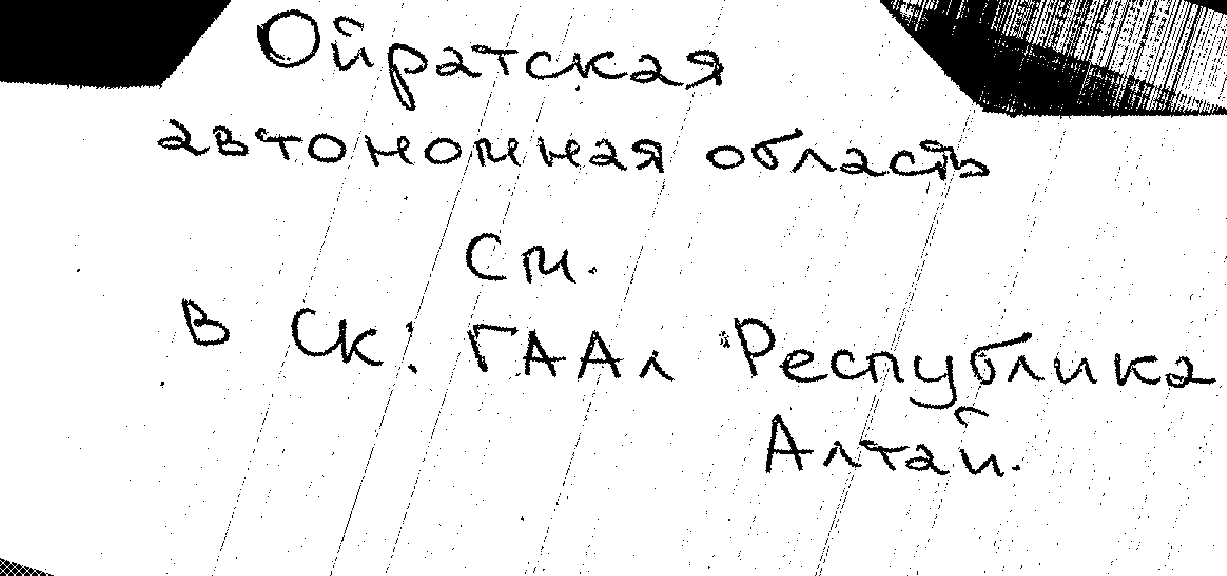 Ойратская
автономная область
См.
в СК: ГААл Республика
Алтай.